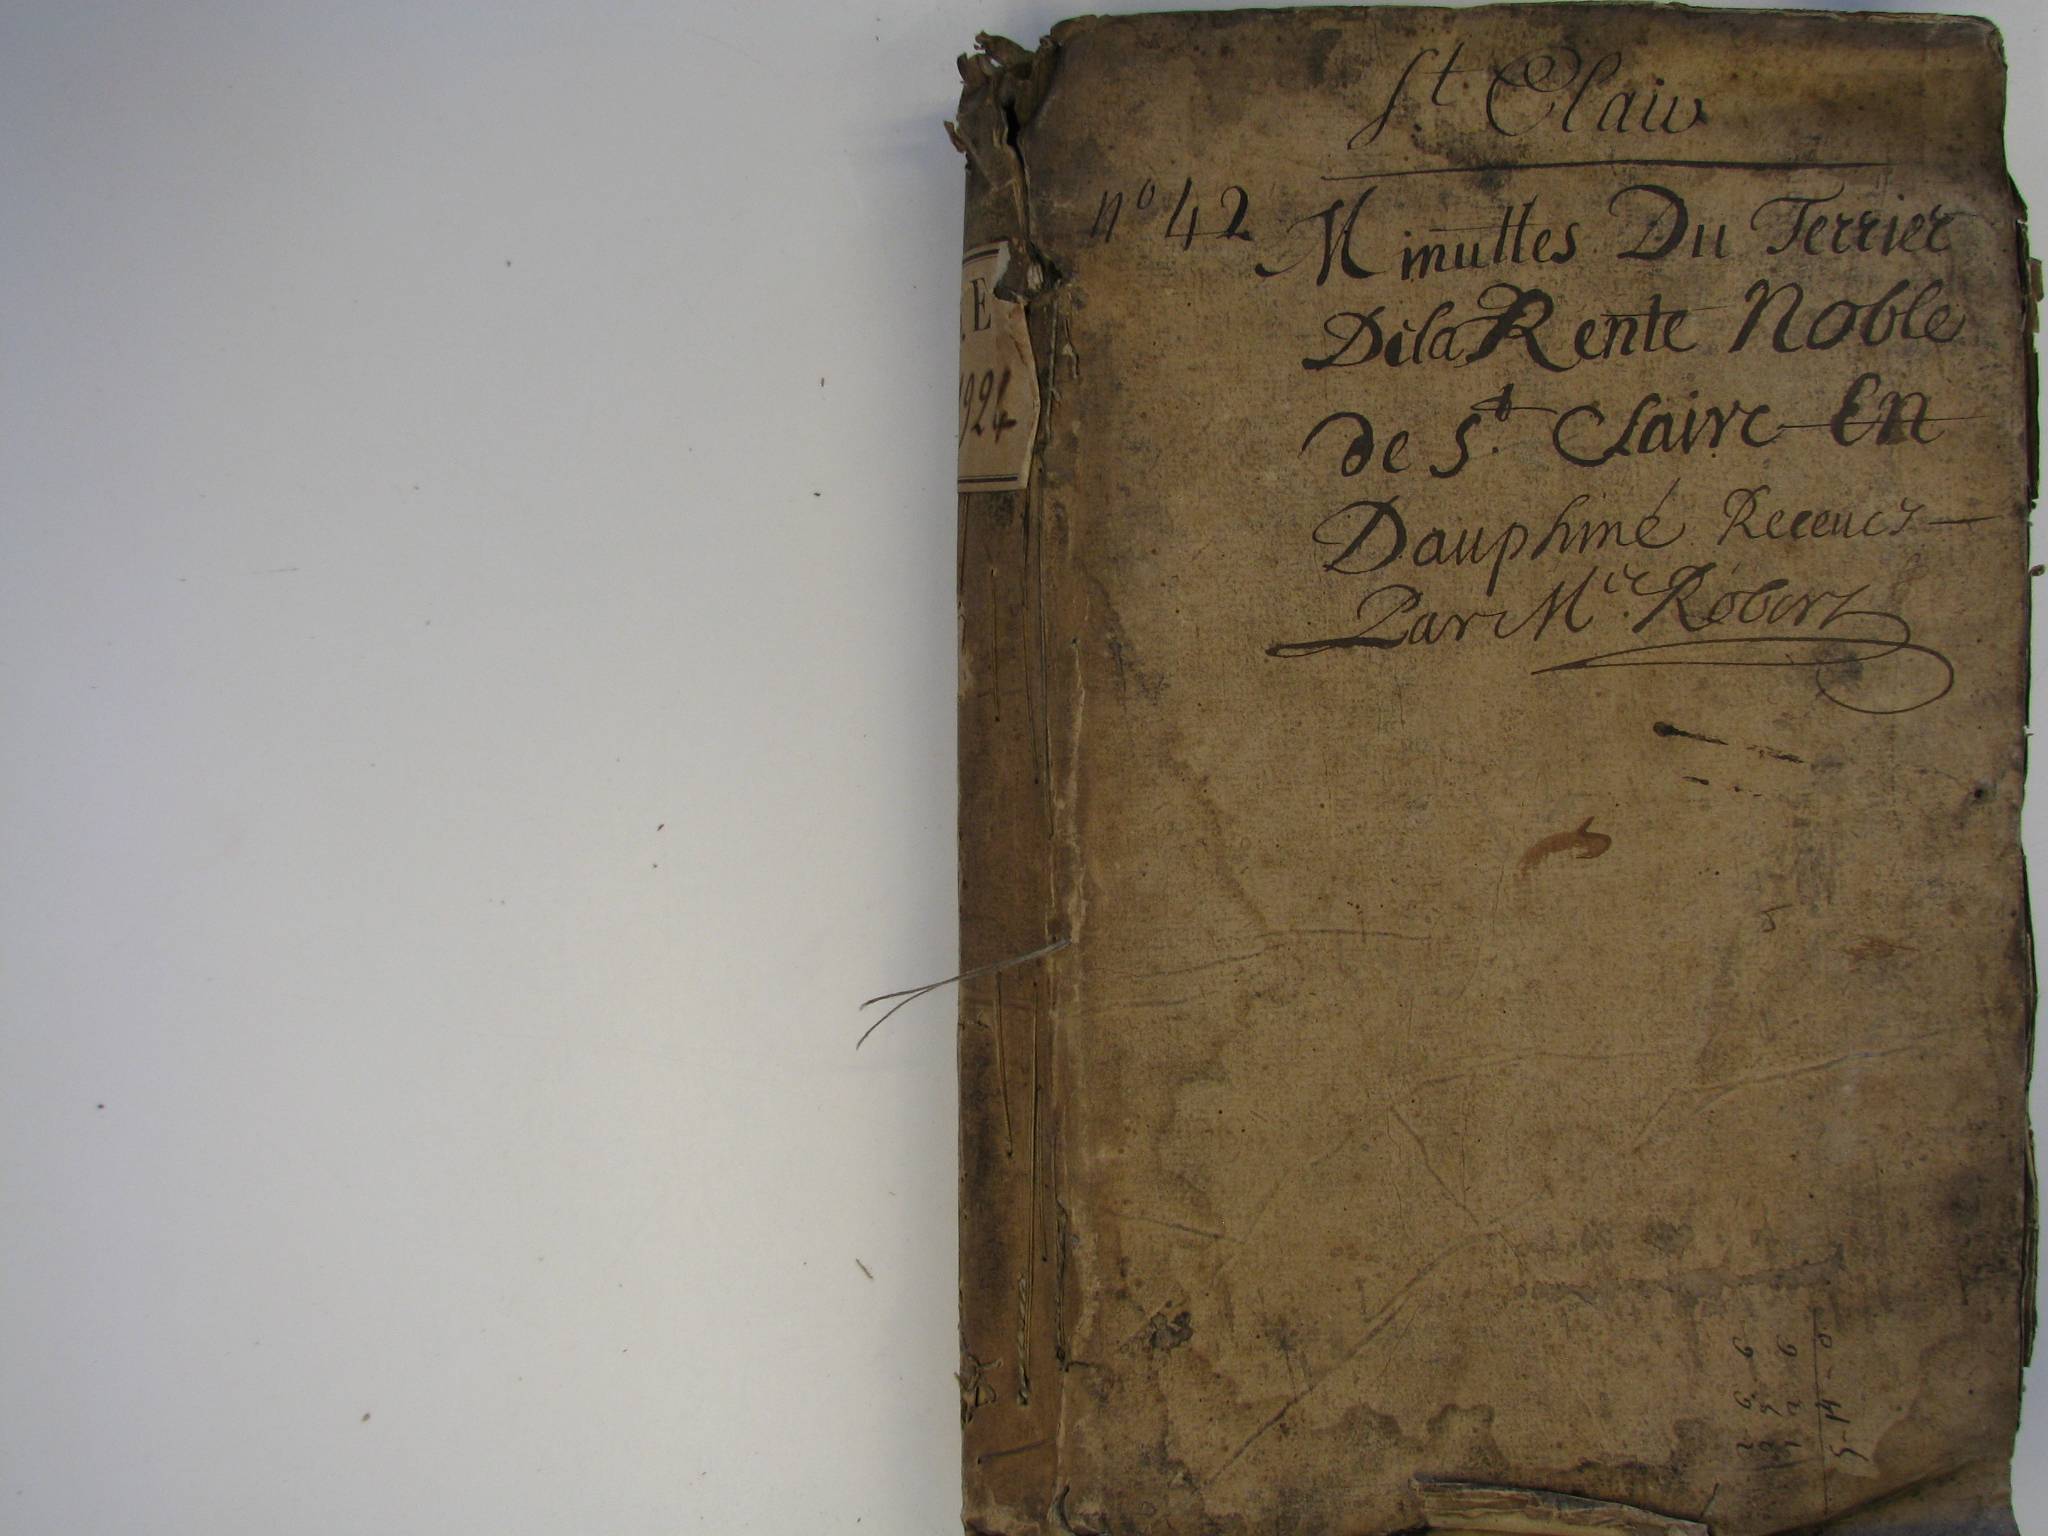 St Clair
no 42 Minuttes Du Terrier
De la Rente Noble
de St. Claire En
Dauphiné Receues
Par Me. Robert
E
924